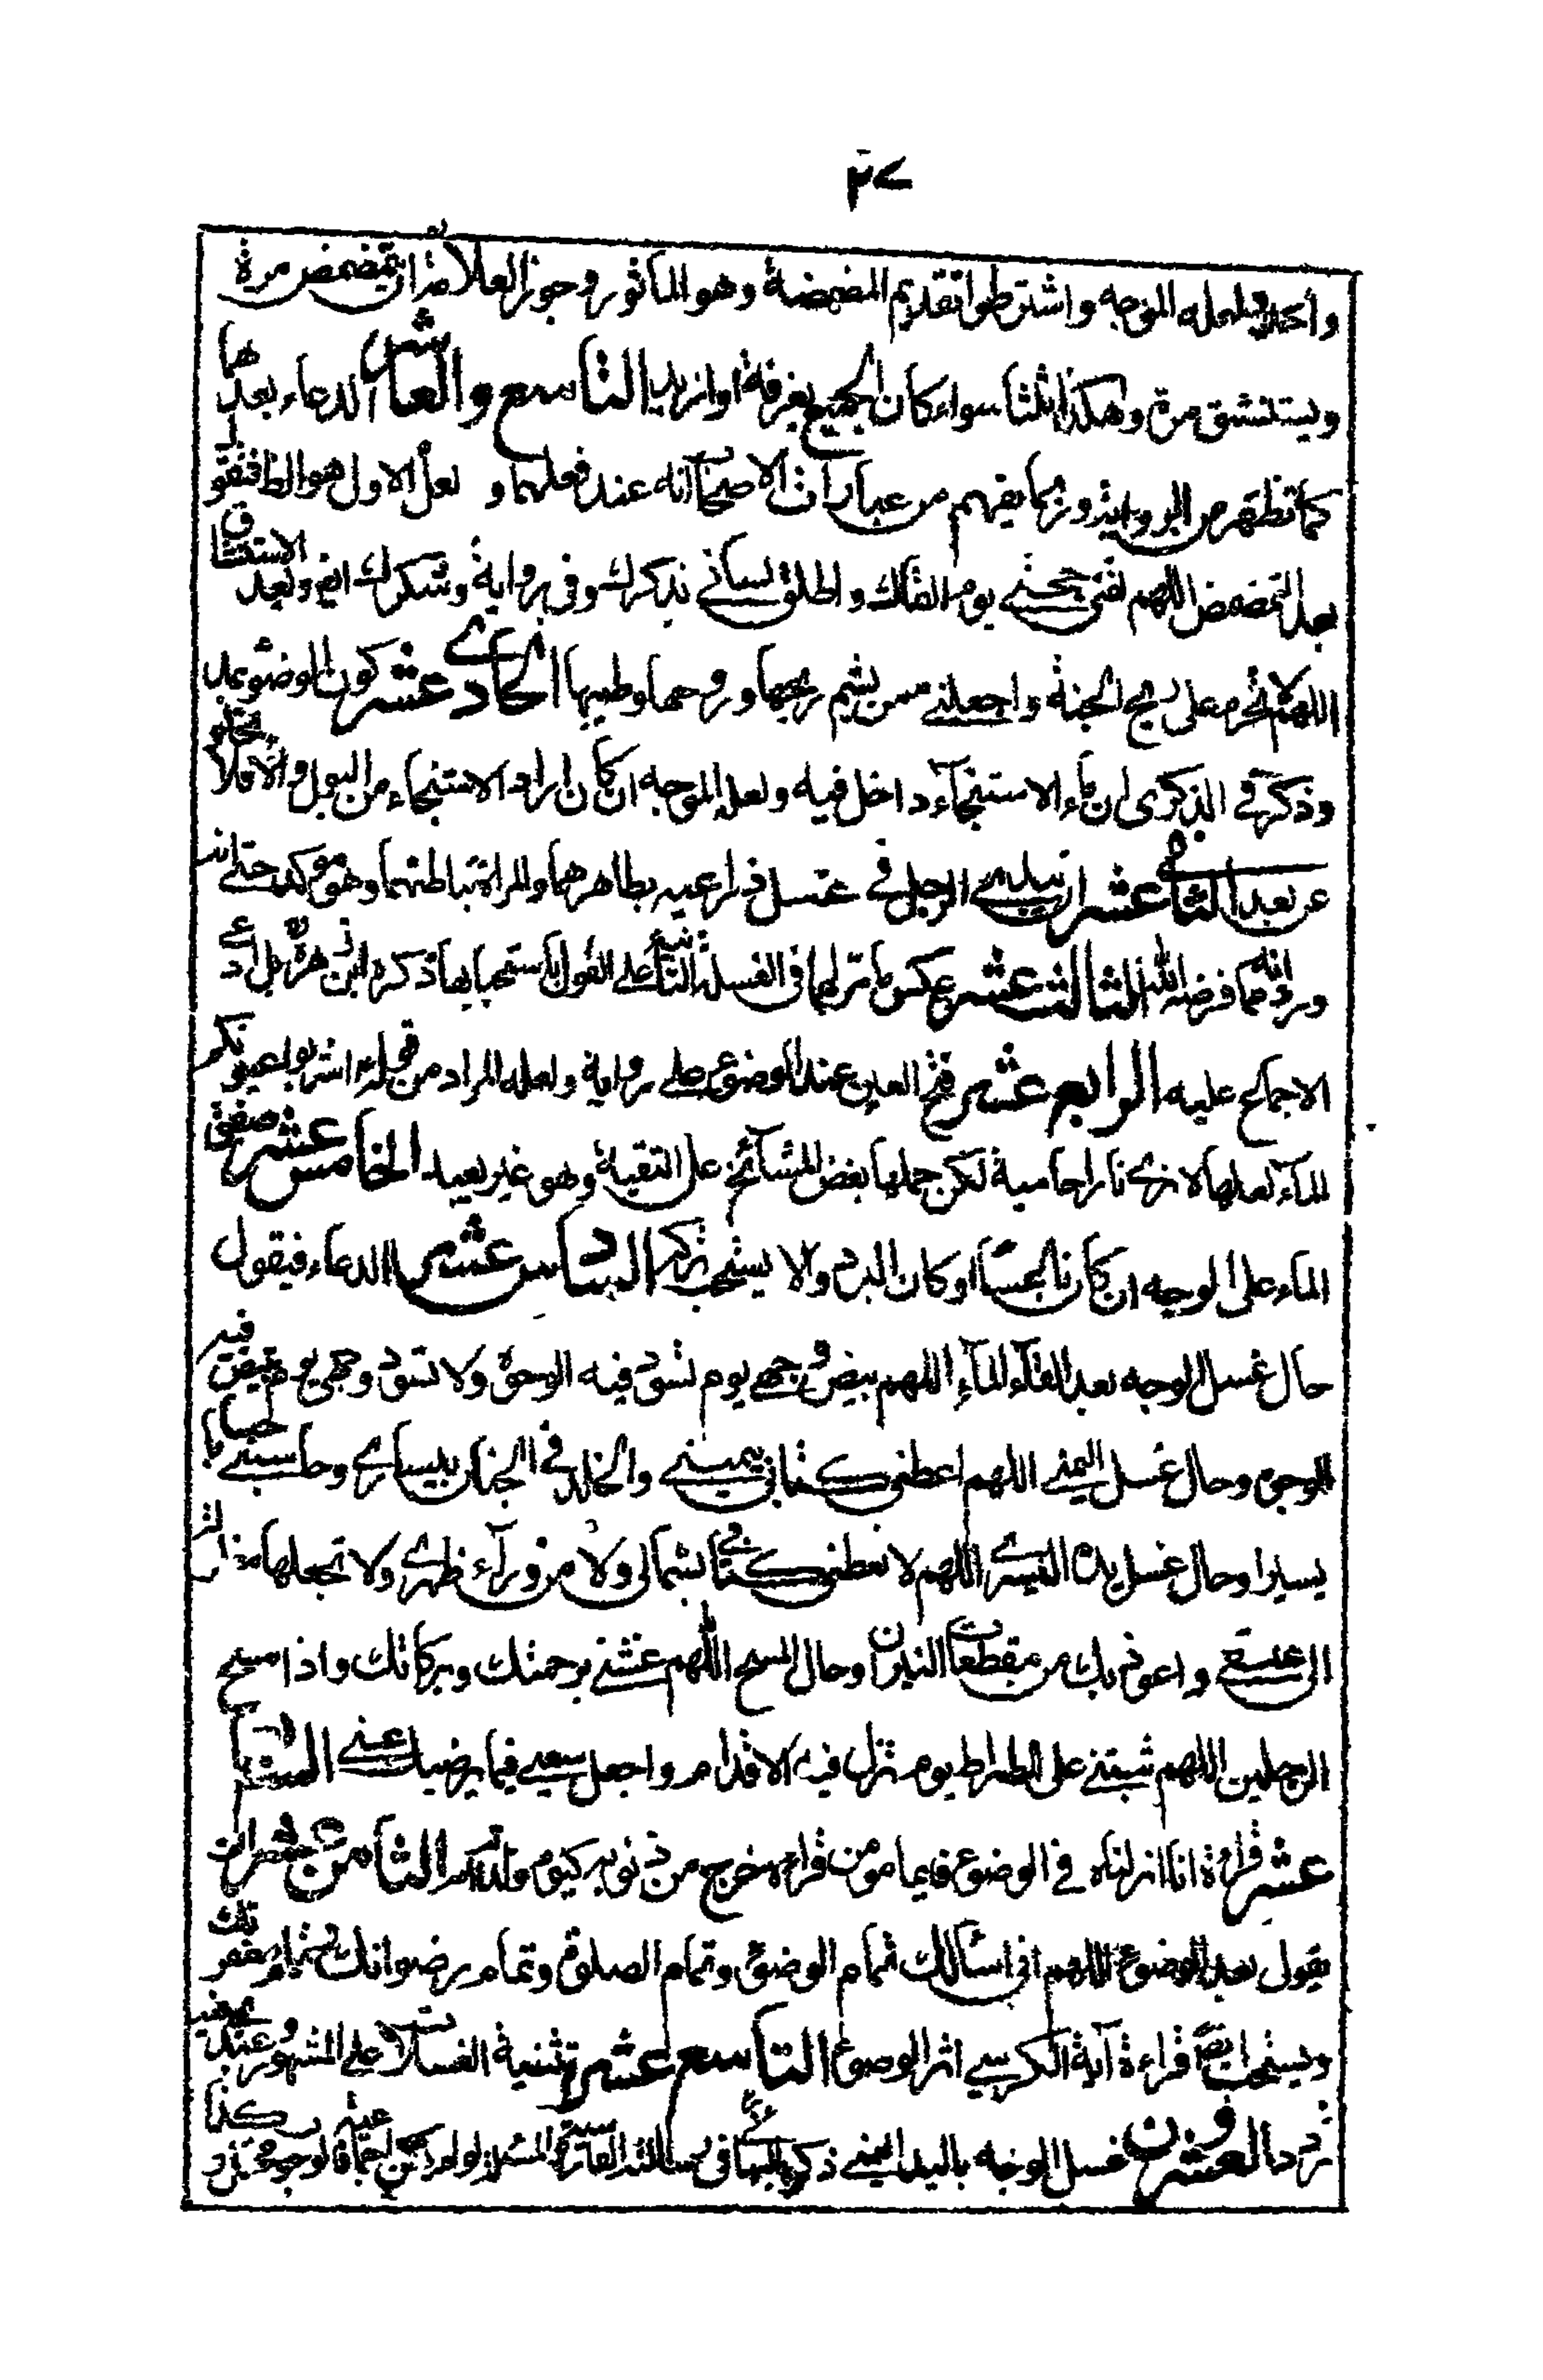 ٣٧
واحد ولعله الموجه واشترطوا تقديم المضمضة وهو المأثور وجوز العلامة ان يتمضمض مرة
ويستنشق مرة وهكذا ثلثا سواء كان الجميع بغرفة او ازيد التاسع والعاشر الدعاء بعدهما
كما تظهر من الرواية وربما يفهم من عبارات الاصحاب انه عند فعلهما و لعل الاول هو الظ فيقو
بعد التمضمض اللهم لقنى حجتے يوم القاك واطلق لسانے بذكرك وفى رواية وشكرك ايض وبعد الاستنشاق
اللهم لا تحرم على ريح الجنة واجعلنے ممن يشم ريحها وروحها وطيبها الحادے عشر كون الوضوء بمد
وذكر فے الذكرى ان ماء الاستنجاء داخل فيه ولعله الموجه ان كان اراد الاستنجاء من البول والا فلا يخلو
عن بعد الثانے عشر ان يبدء الرجل فے غسل ذراعيه بظاهرهما والمراة بباطنهما وهو موكد حتے انه
ورد انه مما فرضه الله الثالث عشر عكس ما مر لهما فى الغسلة الثانية على القول باستحبابها ذكره ابن زهرة بل ادعے
الاجماع عليه الرابع عشر فتح العين عند الوضوء على رواية ولعله المراد من قوله اشربوا عيونكم
الماء لعلها لا ترے نارا حامية لكن حملها بعض المشائخ على التقية وهو غير بعيد الخامس عشر صفق
الماء على الوجه ان كان ناعسا او كان البرد والا يستحب تركه السادس عشر الدعاء فيقول
حال غسل الوجه بعد القاء الماء اللهم بيض وجهے يوم تسود فيه الوجوه ولا تسود وجهى يوم تبيض فيه
الوجوه وحال غسل اليمنے اللهم اعطنى كتابى بيمينے والخلد فے الجنان بيسارے وحاسبنے حسابا
يسيرا وحال غسل يده اليسرے اللهم لا تعطنى كتابے بشمالى ولا من وراء ظهرے ولا تجعلها مغلولة
الى عنقے واعوذ بك من مقطعات النيران وحال المسح اللهم غشنے برحمتك وبركاتك واذا مسح
الرجلين اللهم ثبتنے على الصراط يوم تزل فيه الاقدام واجعل سعيے فيما يرضيك عنے السابع
عشر قراءة انا انزلناه فے الوضوء فايما مومن قراءه خرج من ذنوبه كيوم ولدته امه الثامن عشر ان
يقول بعد الوضوء اللهم انى اسالك تمام الوضوء وتمام الصلوة وتمام رضوانك وتمام مغفرتك
ويستحب ايضا قراءة آية الكرسے اثر الوضوء التاسع عشر تثنية الغسلات على المشهور وعندے فيه
تردد العشرون غسل الوجه باليد اليمنے ذكره البهائے فى رسالته